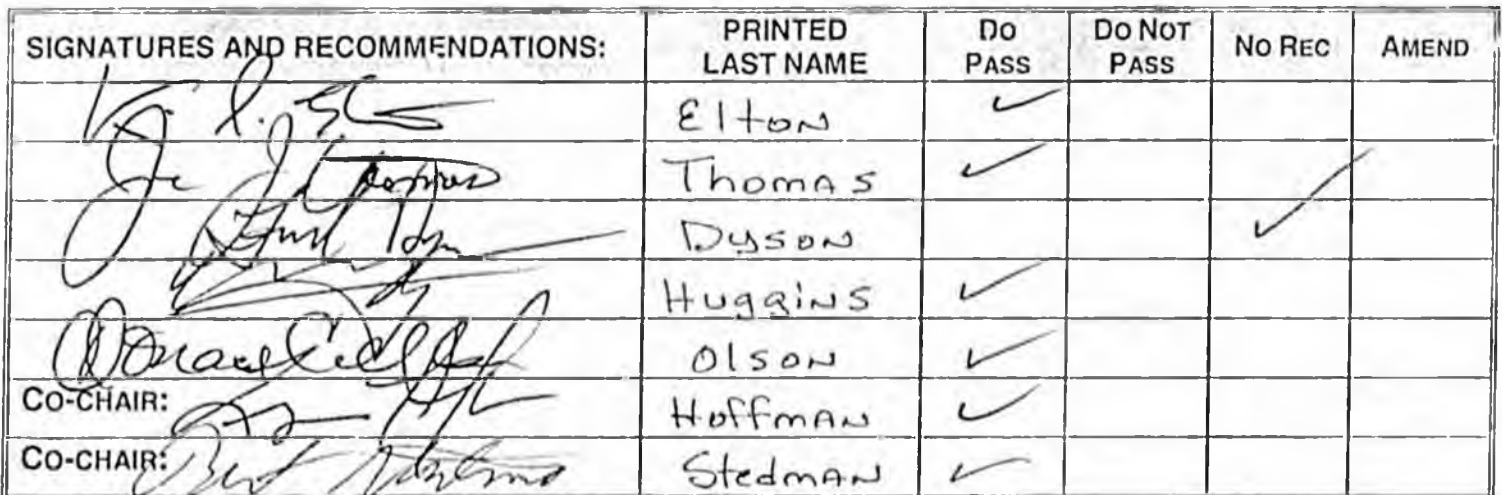 SIGNATURES AND RECOMMENDATIONS: PRINTED LAST NAME DO PASS DO NOT PASS NO REC AMEND
Elton ✓
Thomas ✓
Dyson ✓
Huggins ✓
Olson ✓
CO-CHAIR: Hoffman ✓
CO-CHAIR: Bert Stedman ✓